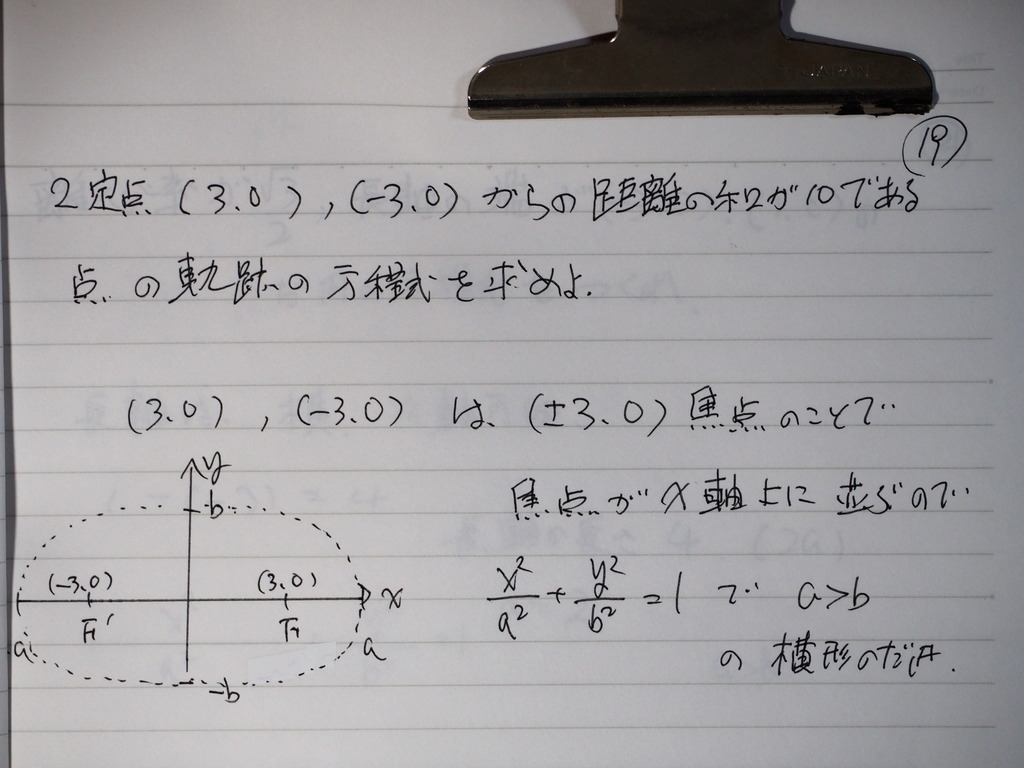 JAPAN
19
2定点 (3.0), (-3.0) からの距離の和が10である
点の軌跡の方程式を求めよ.
(3.0), (-3.0) は、(±3.0) 焦点のことで
焦点がx軸上に並ぶので
x²/a² + y²/b² = 1 で a>b
の横形のだ円.
y
b
(-3.0) (3.0) x
F' F
a a
-b